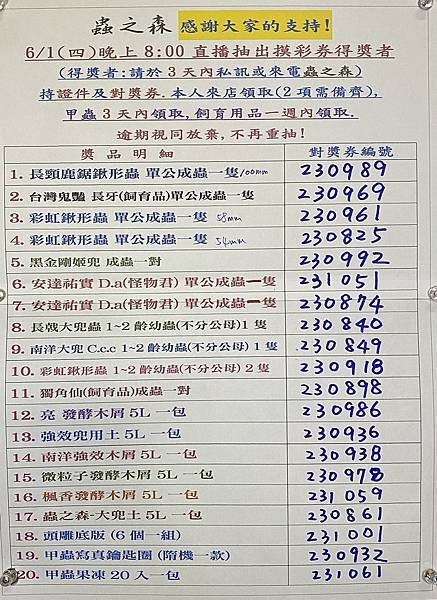 蟲之森 感謝大家的支持!
6/1(四)晚上 8:00 直播抽出摸彩券得獎者
(得獎者:請於 3 天內私訊或來電蟲之森)
持證件及對獎券.本人來店領取(2 項需備齊),
甲蟲 3 天內領取,飼育用品一週內領取.
逾期視同放棄,不再重抽!
獎品明細 對獎券編號
1. 長頸鹿鋸鍬形蟲 單公成蟲一隻/100mm 230989
2. 台灣鬼豔 長牙(飼育品)單公成蟲一隻 230969
3. 彩虹鍬形蟲 單公成蟲一隻 58mm 230961
4. 彩虹鍬形蟲 單公成蟲一隻 54mm 230825
5. 黑金剛姬兜 成蟲一對 230992
6. 安達祐實 D.a(怪物君) 單公成蟲一隻 231051
7. 安達祐實 D.a(怪物君) 單公成蟲一隻 230874
8. 長戟大兜蟲 1~2 齡幼蟲(不分公母)1 隻 230840
9. 南洋大兜 C.c.c 1~2 齡幼蟲(不分公母) 1 隻 230849
10. 彩虹鍬形蟲 1~2 齡幼蟲(不分公母) 2 隻 230918
11. 獨角仙(飼育品)成蟲一對 230898
12. 亮 發酵木屑 5L 一包 230986
13. 強效兜用土 5L 一包 230936
14. 南洋強效木屑 5L 一包 230938
15. 微粒子發酵木屑 5L 一包 230978
16. 楓香發酵木屑 5L 一包 231059
17. 蟲之森-大兜土 5L 一包 230861
18. 頭雕底版 (6 個一組) 231001
19. 甲蟲寫真鑰匙圈 (隋機一款) 230932
20. 甲蟲果凍 20 入一包 231061